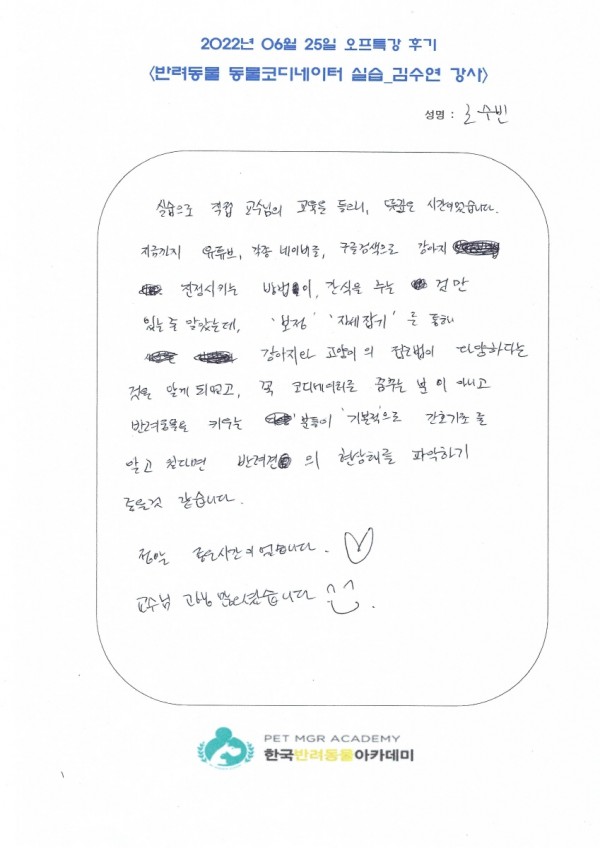 2022년 06월 25일 오프특강 후기
<반려동물 동물코디네이터 실습_김수연 강사>
성명 : 수빈
실습으로 직접 교수님의 교육을 들으니, 뜻깊은 시간이었습니다.
지금까지 유튜브, 각종 네이버글, 구글검색으로 강아지
진정시키는 방법이, 간식을 주는 것만
있는 줄 알았는데, '보정' '자세잡기' 를 통해
강아지와 고양이의 접근법이 다양하다는
것을 알게 되었고, 꼭 코디네이터를 꿈꾸는 분이 아니고
반려동물을 키우는 분들이 '기본적'으로 간호기초를
알고 있다면 반려견의 현상태를 파악하기
좋을것 같습니다.
정말 좋은시간이었습니다.
교수님 고생 많으셨습니다
PET MGR ACADEMY
한국반려동물아카데미